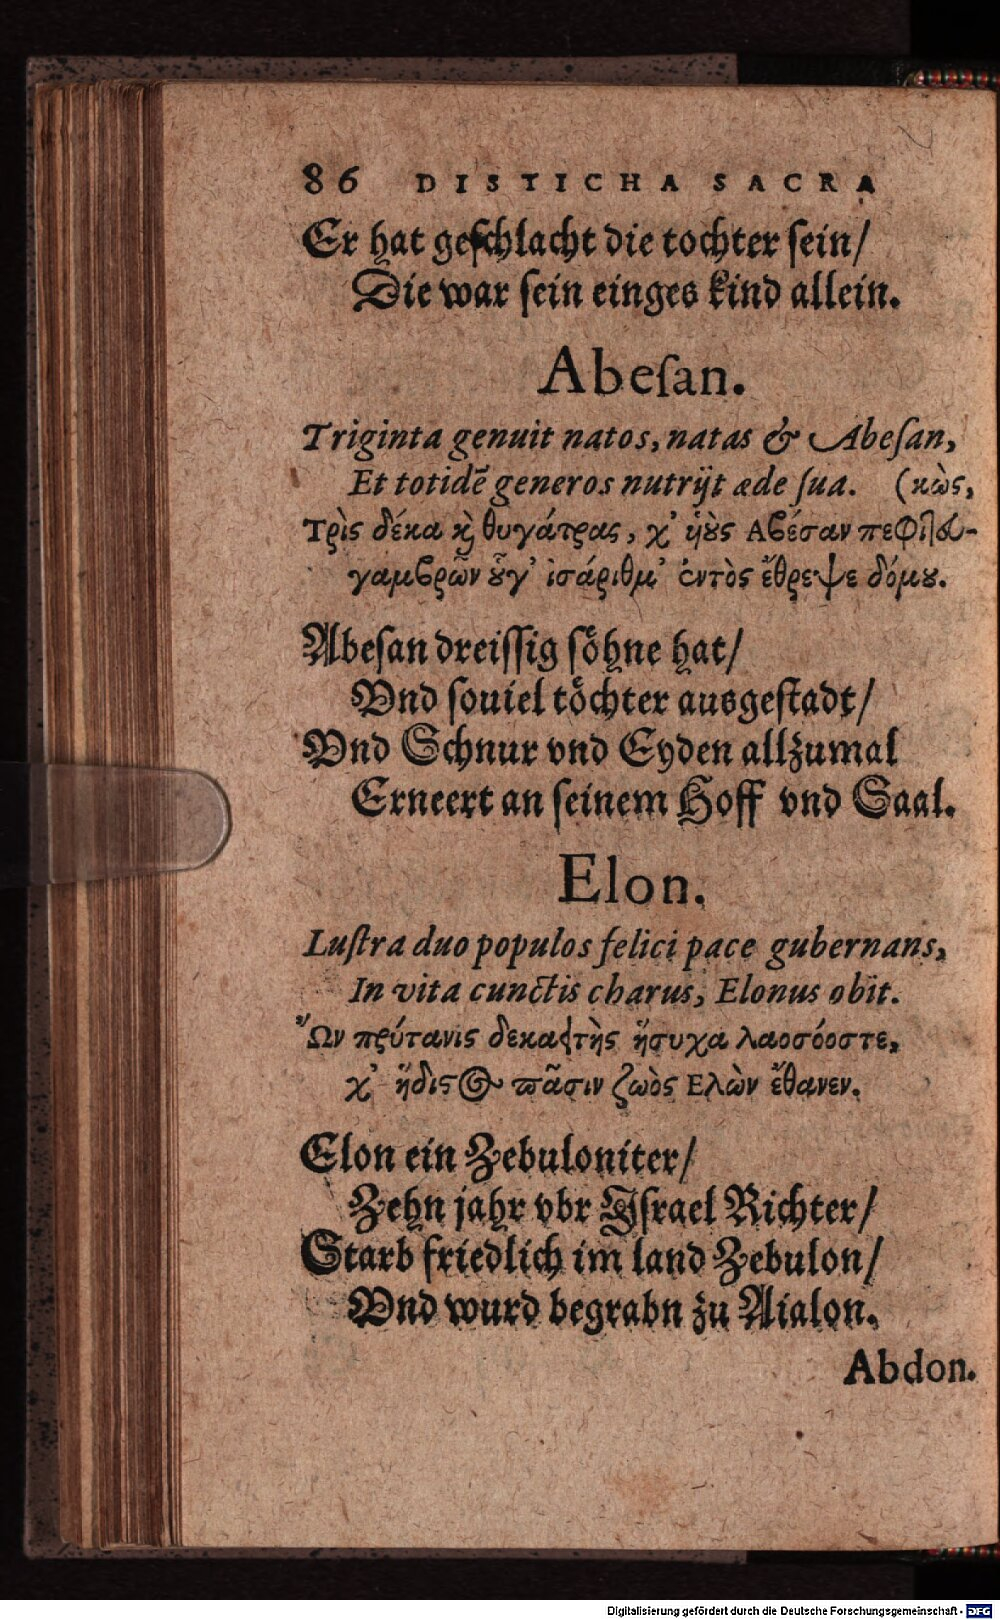 86 DISTICHA SACRA
Er hat geſchlacht die tochter ſein/
Die war ſein einges kind allein.
Abeſan.
Triginta genuit natos, natas & Abeſan,
Et totidē generos nutrijt æde ſua. (κὼς,
Τρὶς δέκα κὶ θυγάτρας, χ' ἡοὺς Αβέσαν πεφιλη-
γαμβρῶν ὅγ' ἰσάριθμ' ἐντὸς ἔθρεψε δόμου.
Abeſan dreiſſig ſöhne hat/
Vnd ſouiel töchter ausgeſtadt/
Vnd Schnur vnd Eyden allzumal
Erneert an ſeinem Hoff vnd Saal.
Elon.
Luſtra duo populos felici pace gubernans,
In vita cunctis charus, Elonus obijt.
Ὢν πρύτανις δεκαετὴς ἥσυχα λαοσόοστε,
χ' ἥδιστος πᾶσιν ζωὸς Ελὼν ἔθανεν.
Elon ein Zebuloniter/
Zehn jahr vbr Iſrael Richter/
Starb friedlich im land Zebulon/
Vnd wurd begrabn zu Aialon.
Abdon.
Digitalisierung gefördert durch die Deutsche Forschungsgemeinschaft - DFG